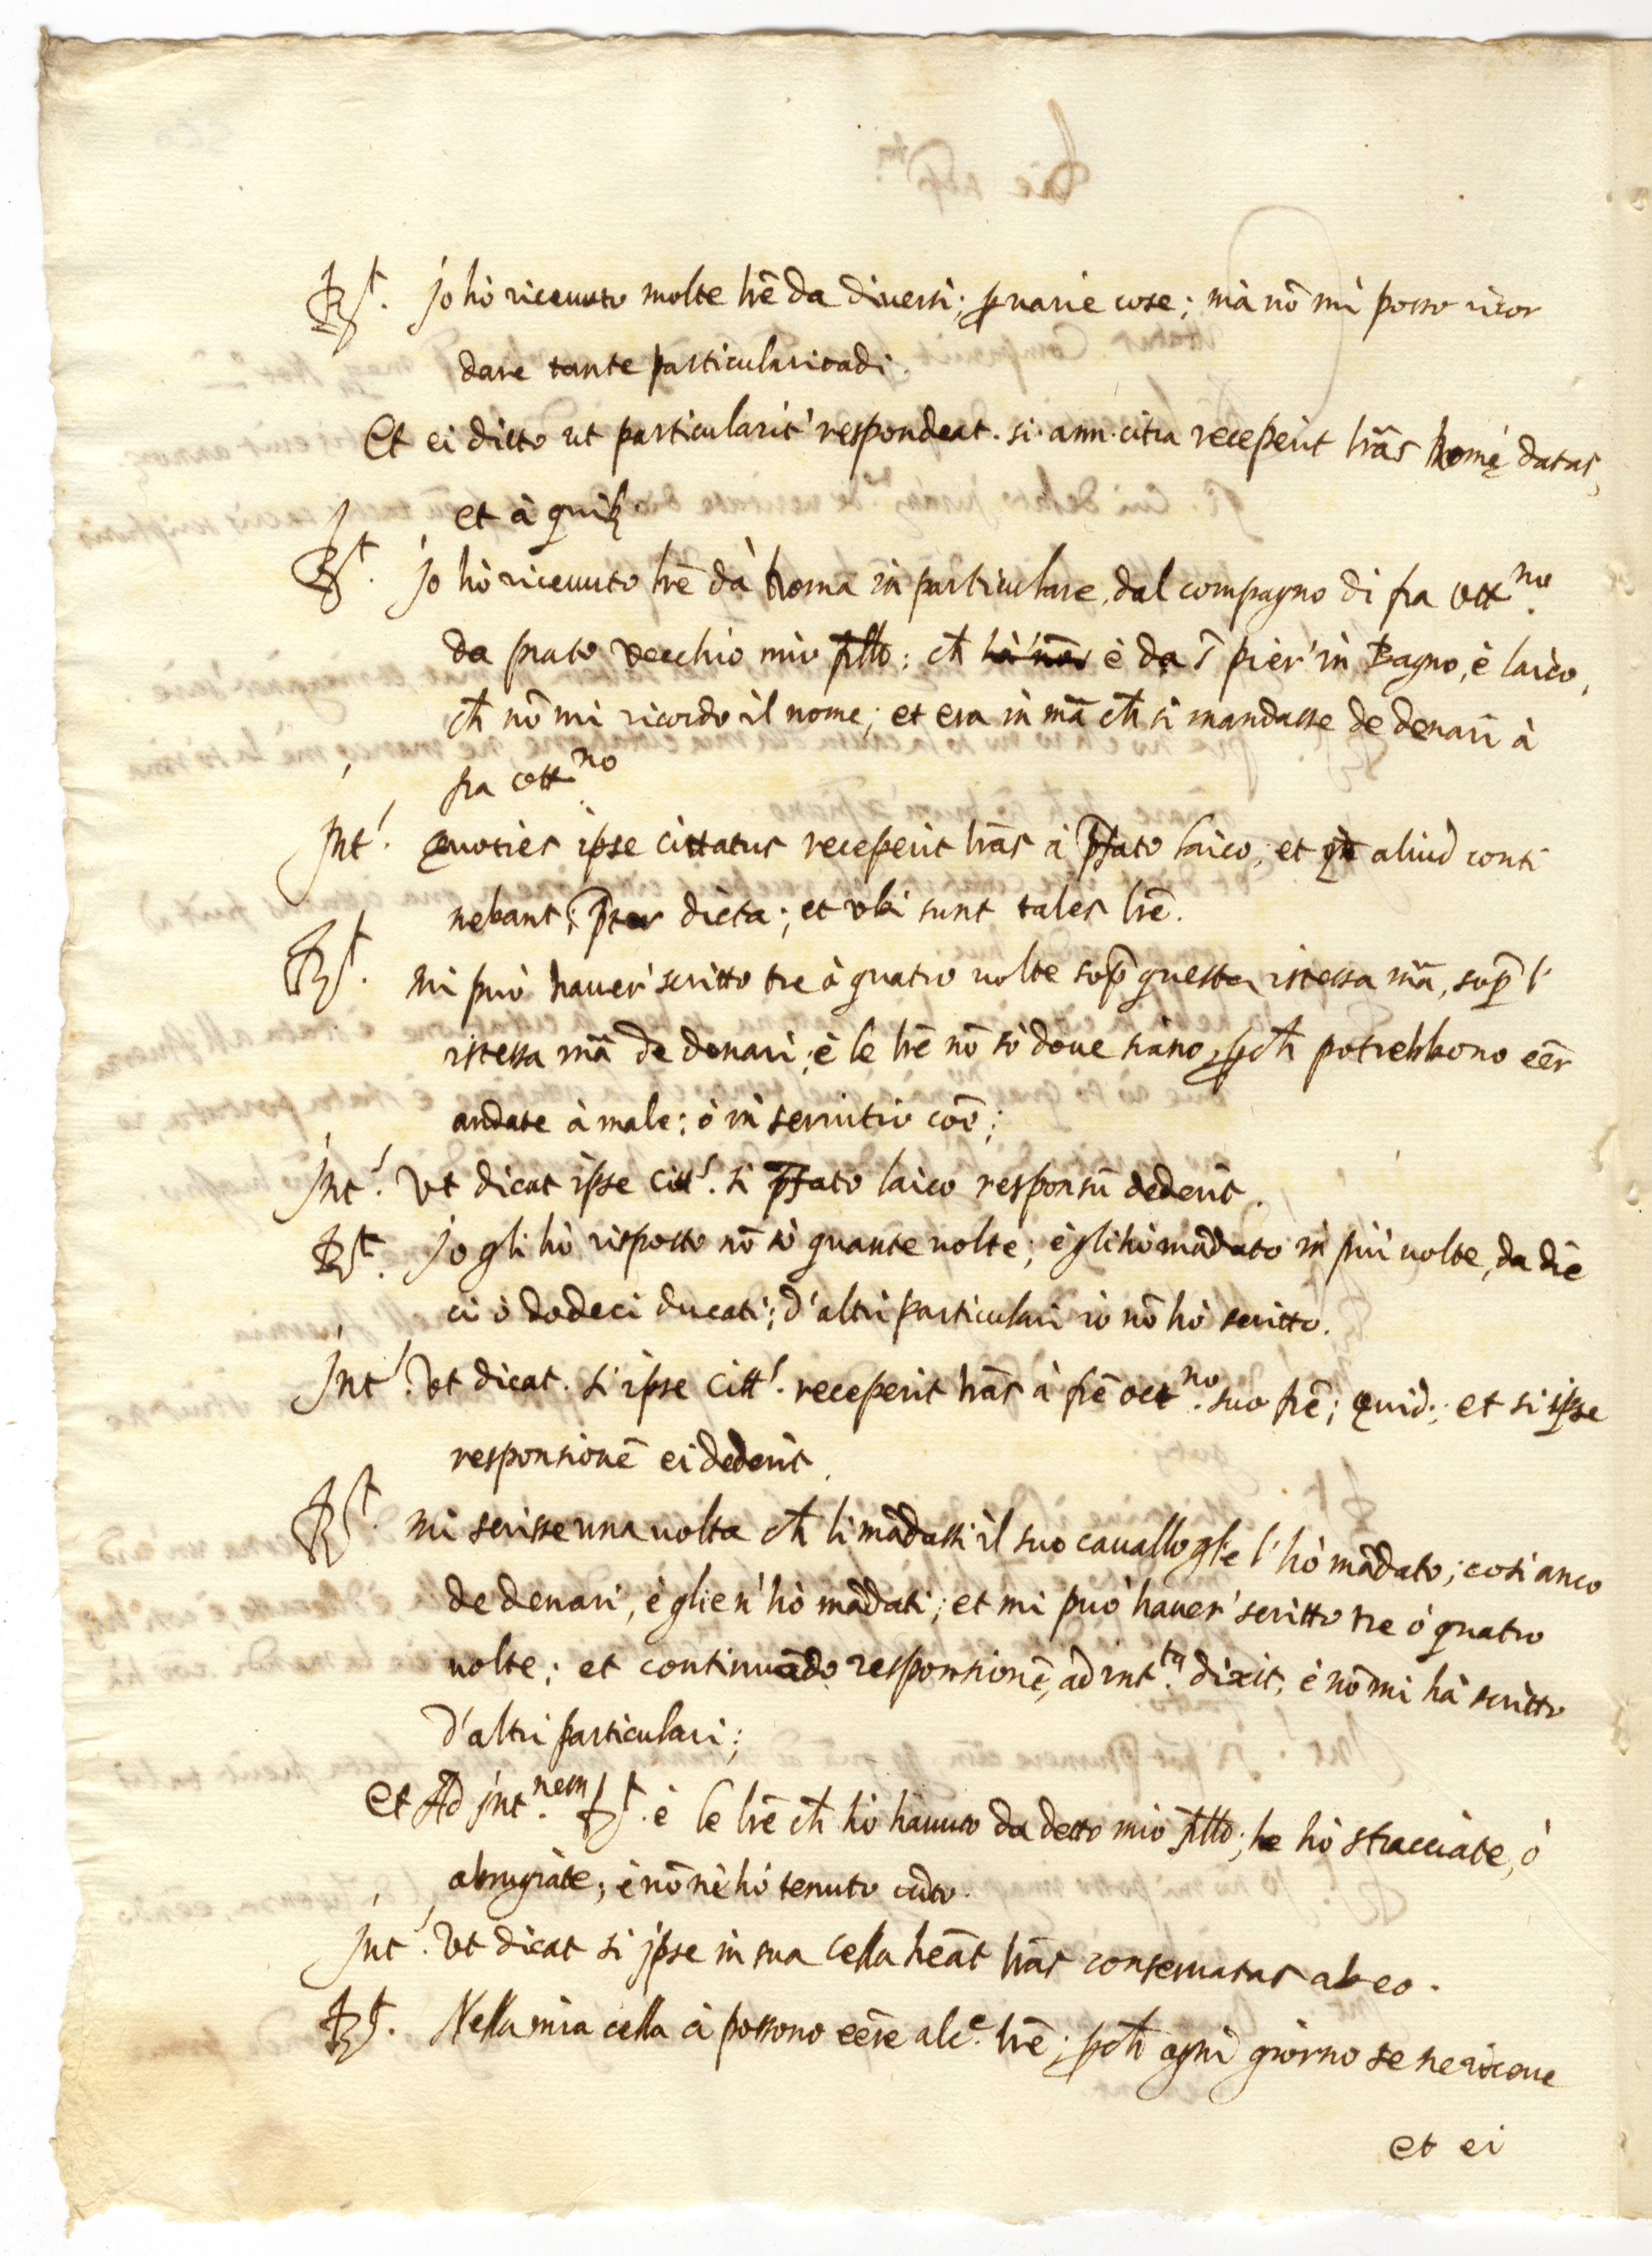 R.t Jo hò riceuuto molte lrẽ da diuersi; ꝑ uarie cose; mà nõ mi posso ricor
dare tante particularitadi.
Et ei dicto ut particularit' respondeat. si. ann. citra receperit lrãs Romę datas,
et à quibꝫ
R.t Jo hò riceuuto lrẽ dà Roma in particulare, dal compagno di fra Ott.no
da prato vecchio mio frt̃llo; ch̃ è da S̃ pier' in Bagno, è laico,
ch̃ nõ mi ricordo il nome; et era in mã ch̃ si mandasse de denari à
fra Ott.no
Int.' Quoties ipse cittatus receperit lrãs à p̃fato laico; et qd̃ aliud conti
nebant; p̃ter dicta; et vbi sunt tales lrẽ.
R.t mi può hauer' scritto tre ò quatro uolte sop̃ questa istessa mã, sop̃ l'
istessa mã de denari; è le lrẽ nõ sò doue siano, ꝑch̃ potrebbono eẽr
andate à male; ò in seruitio coẽ;
Int.' Vt dicat ipse citt.' si p̃fato laico responsũ dederit.
R.t Jo gli hò risposto nõ sò quante uolte; è gli hò mãdato in più uolte, da die
ci ò dodeci ducati; d'altri particulari io nõ hò scritto.
Int.' Vt dicat. si ipse Citt.' receperit lrãs à frẽ Oct.no suo frẽ; quid; et si ipse
responsionẽ ei dederit.
R.t mi scrisse una uolta ch̃ li mãdassi il suo cauallo glie l'hò mãdato; cosi anco
de denari, è glie n'hò mãdati; et mi può hauer' scritto tre ò quatro
uolte; et continuãdo responsionẽ, ad int.ta dixit, è nõ mi hà scritto
d'altri particulari;
Et Ad Int.nem R.t è le lrẽ ch̃ hò hauuto da detto mio frt̃llo; le hò stracciate, ò
abrugiate; è nõ nè hò tenuto cũto.
Int.' Vt dicat si ipse in sua cella heãt lrãs conseruatas ab eo.
R.t Nella mia cella ci possono eẽre alc.e lrẽ; ꝑch̃ ogni giorno se ne riceue
et ei